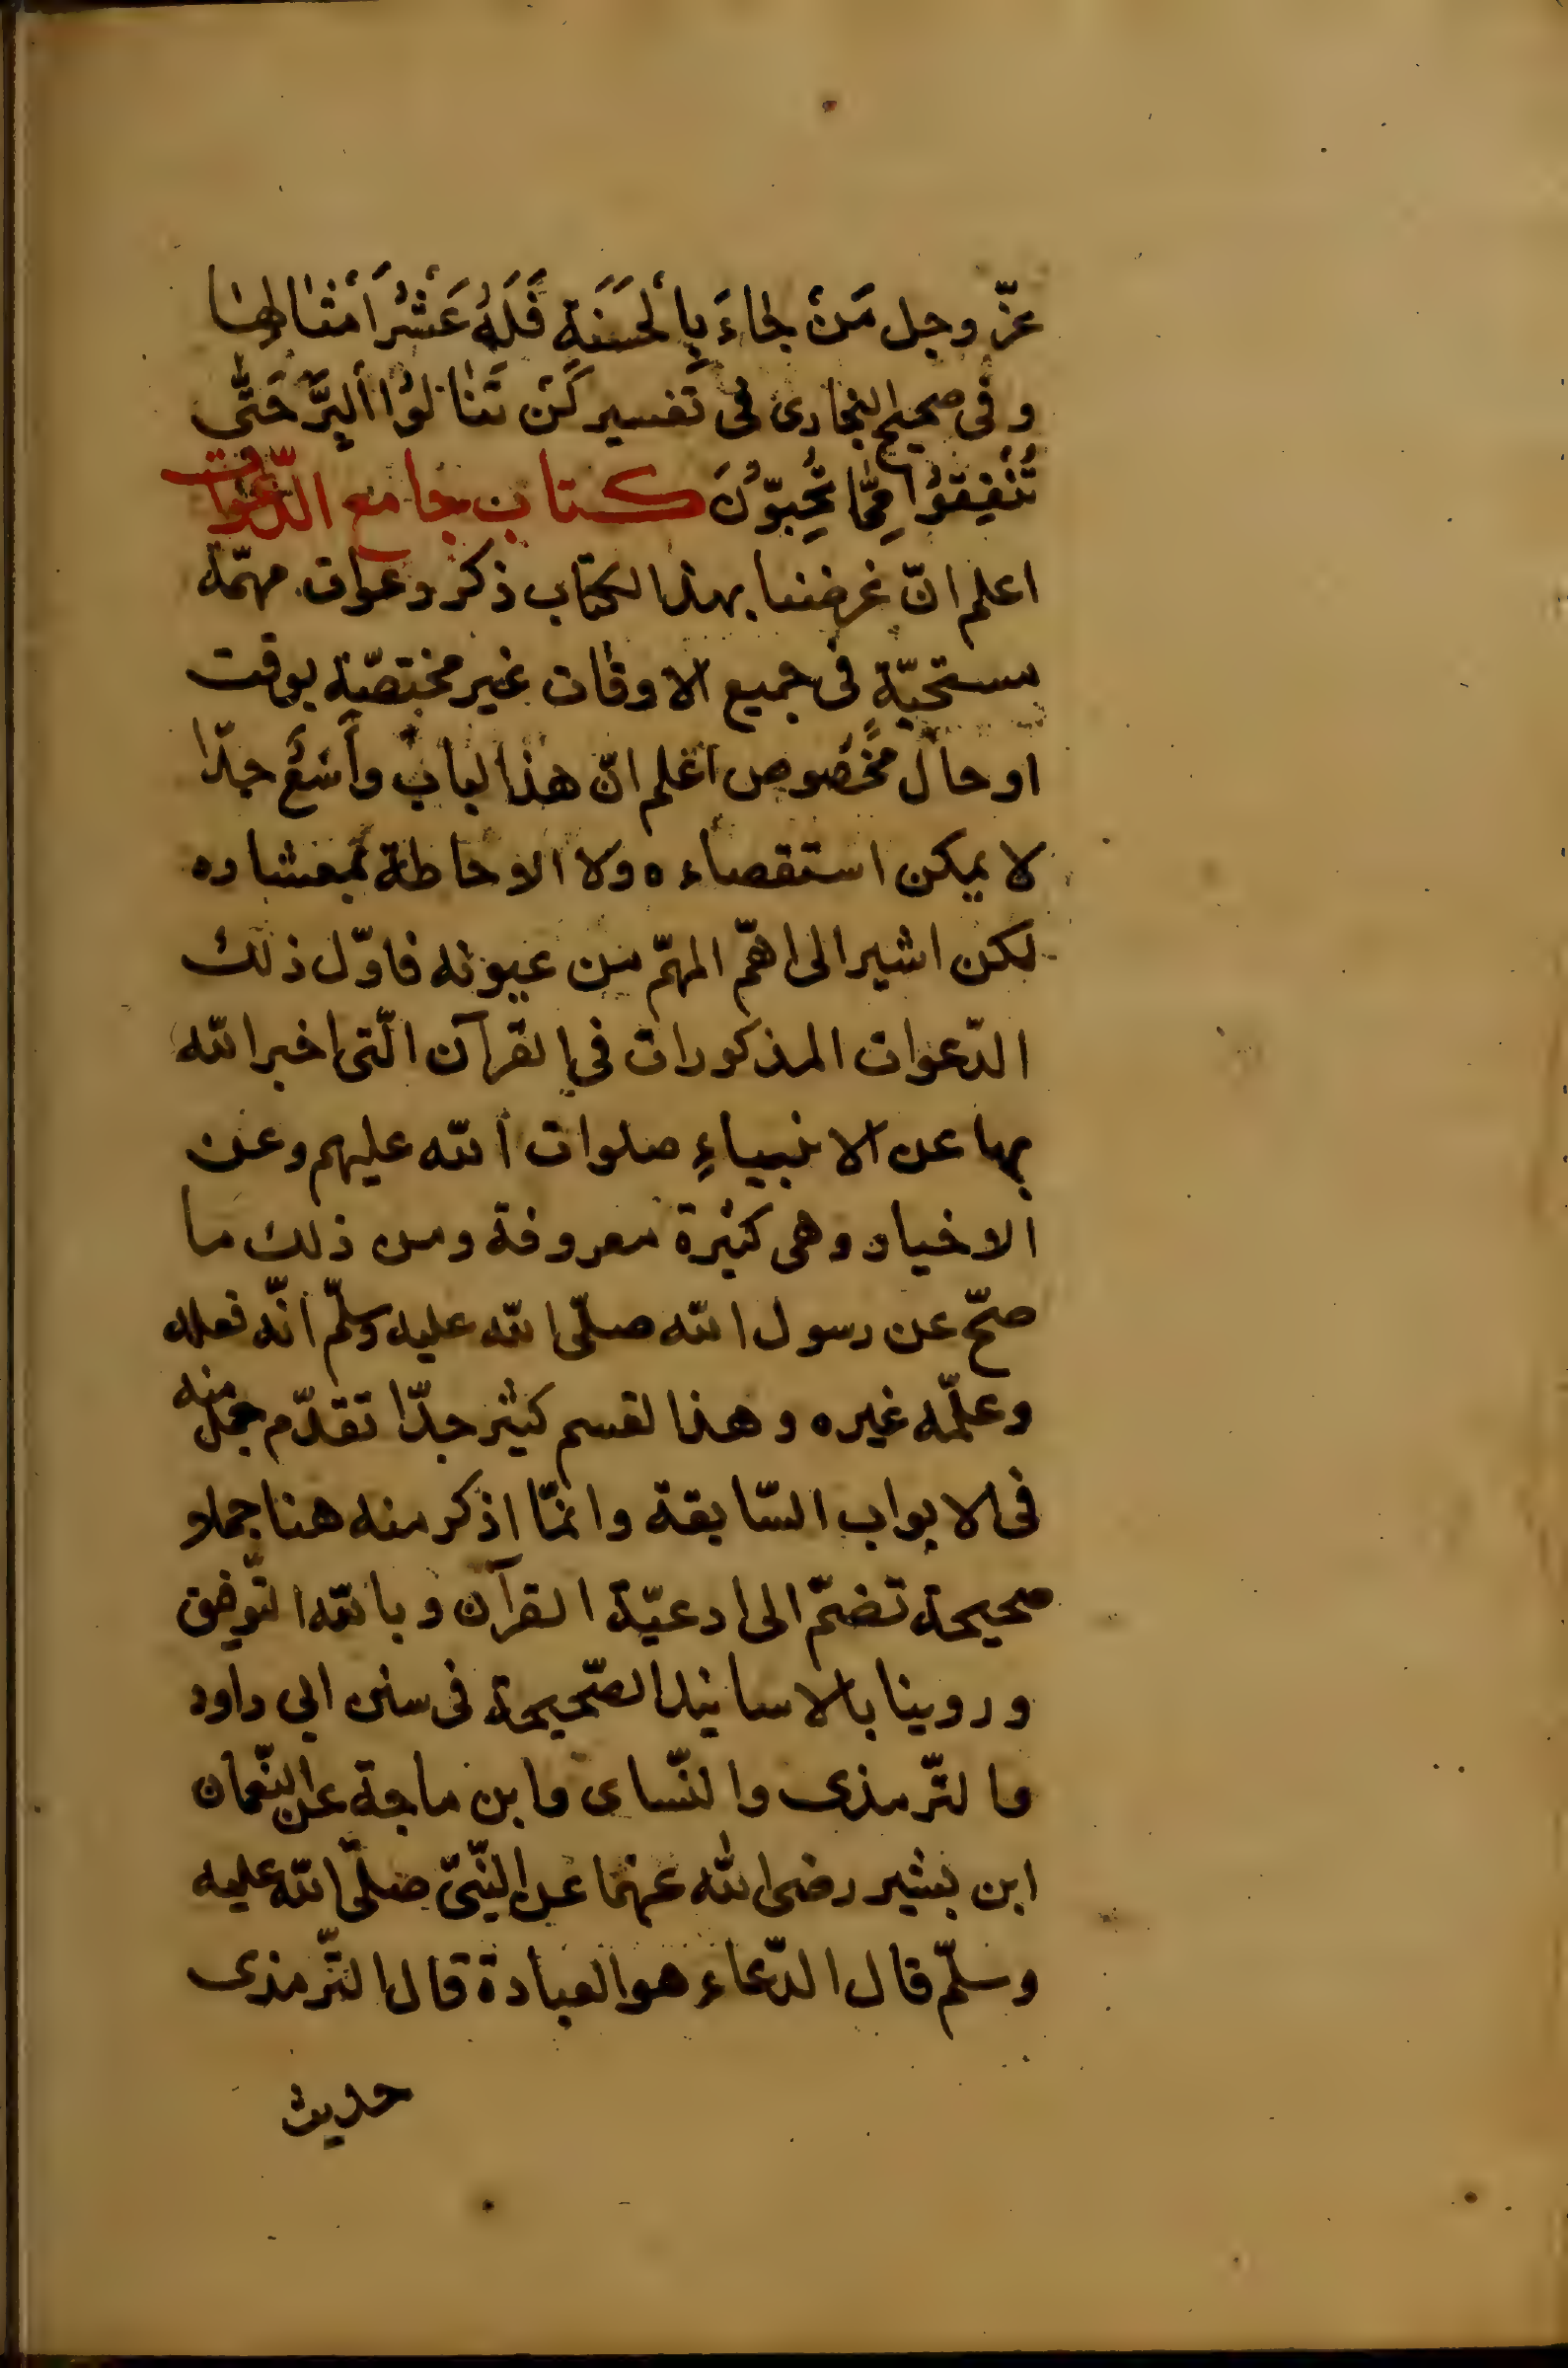 عزّ وجل مَنْ جٰاءَ بِالْحَسَنَةِ فَلَهُ عَشْرُ اَمْثٰالِهٰا
وفى صحيح البخارى فى تفسير لَنْ تَنٰالُوْا الْبِرَّ حَتّٰى
تُنْفِقُوْا مِمّٰا تُحِبّوُنَ كتاب جامع الدّعوات
اعلم انّ غرضنا بهذا لكتاب ذكر دعوات مهمّة
مستحبّةٍ فى جميع الاوقات غير مختصّة بوقت
او حال مخصوص اعلم انّ هذا لباب واسع جدّا
لا يمكن استقصاءه ولا الاحاطة بمعشاره
لكن اشير الى اهمّ المهمّ من عيونه فاوّل ذلك
الدّعوات المذكورات فى القرآن الّتى اخبر الله
بها عن الانبياءِ صلوات الله عليهم وعن
الاخيار وهى كثيرة معروفة ومن ذلك ما
صحّ عن رسول الله صلّى الله عليه وسلّم انّه فعله
وعلّمه غيره وهذا لقسم كثير جدّا تقدّم جمل منه
فى الابواب السّابقة وانمّا اذكر منه هنا جملا و
صحيحة تضمّ الى ادعيّة القرآن وبالله التّوفيق
وروينا بالاسانيد الصّحيحة فى سنن ابى داود
والتّرمذى والنّساى وابن ماجة عن النّعمان
ابن بشير رضى الله عنهما عن النّبىّ صلّى الله عليه
وسلّم قال الدّعاء هو العبادة قال التّرمذى
حديث